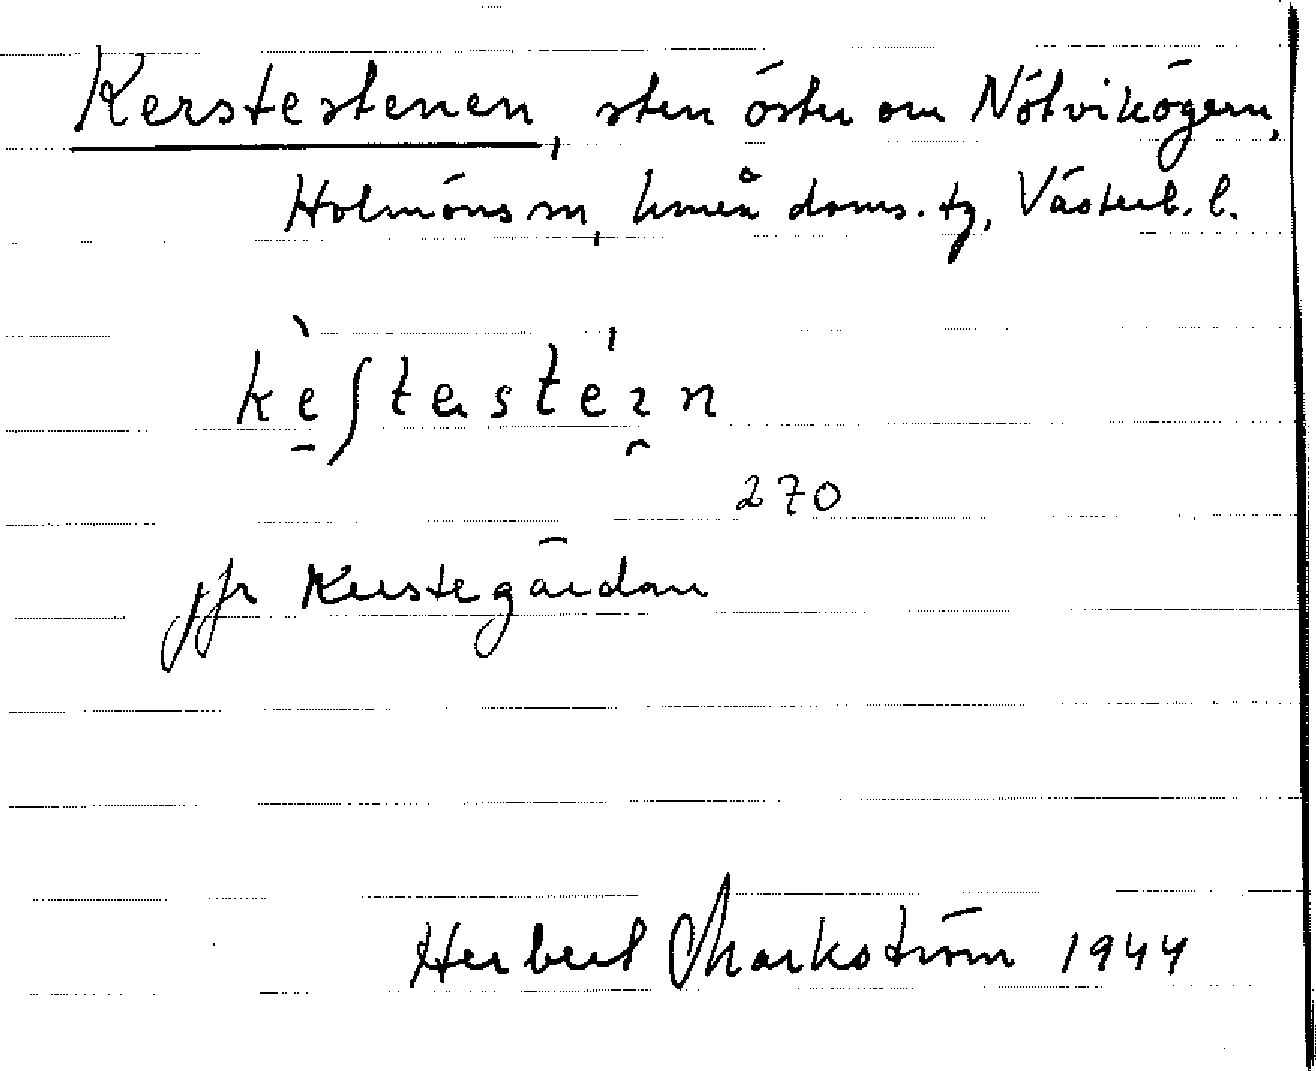 Kerstestenen, sten öster om Nötvikögern,
Holmöns sn, Umeå doms. tg, Västerb. l.
kè̱ʃtestén
270
jfr Kerstegårdan
Herbert Markström 1944